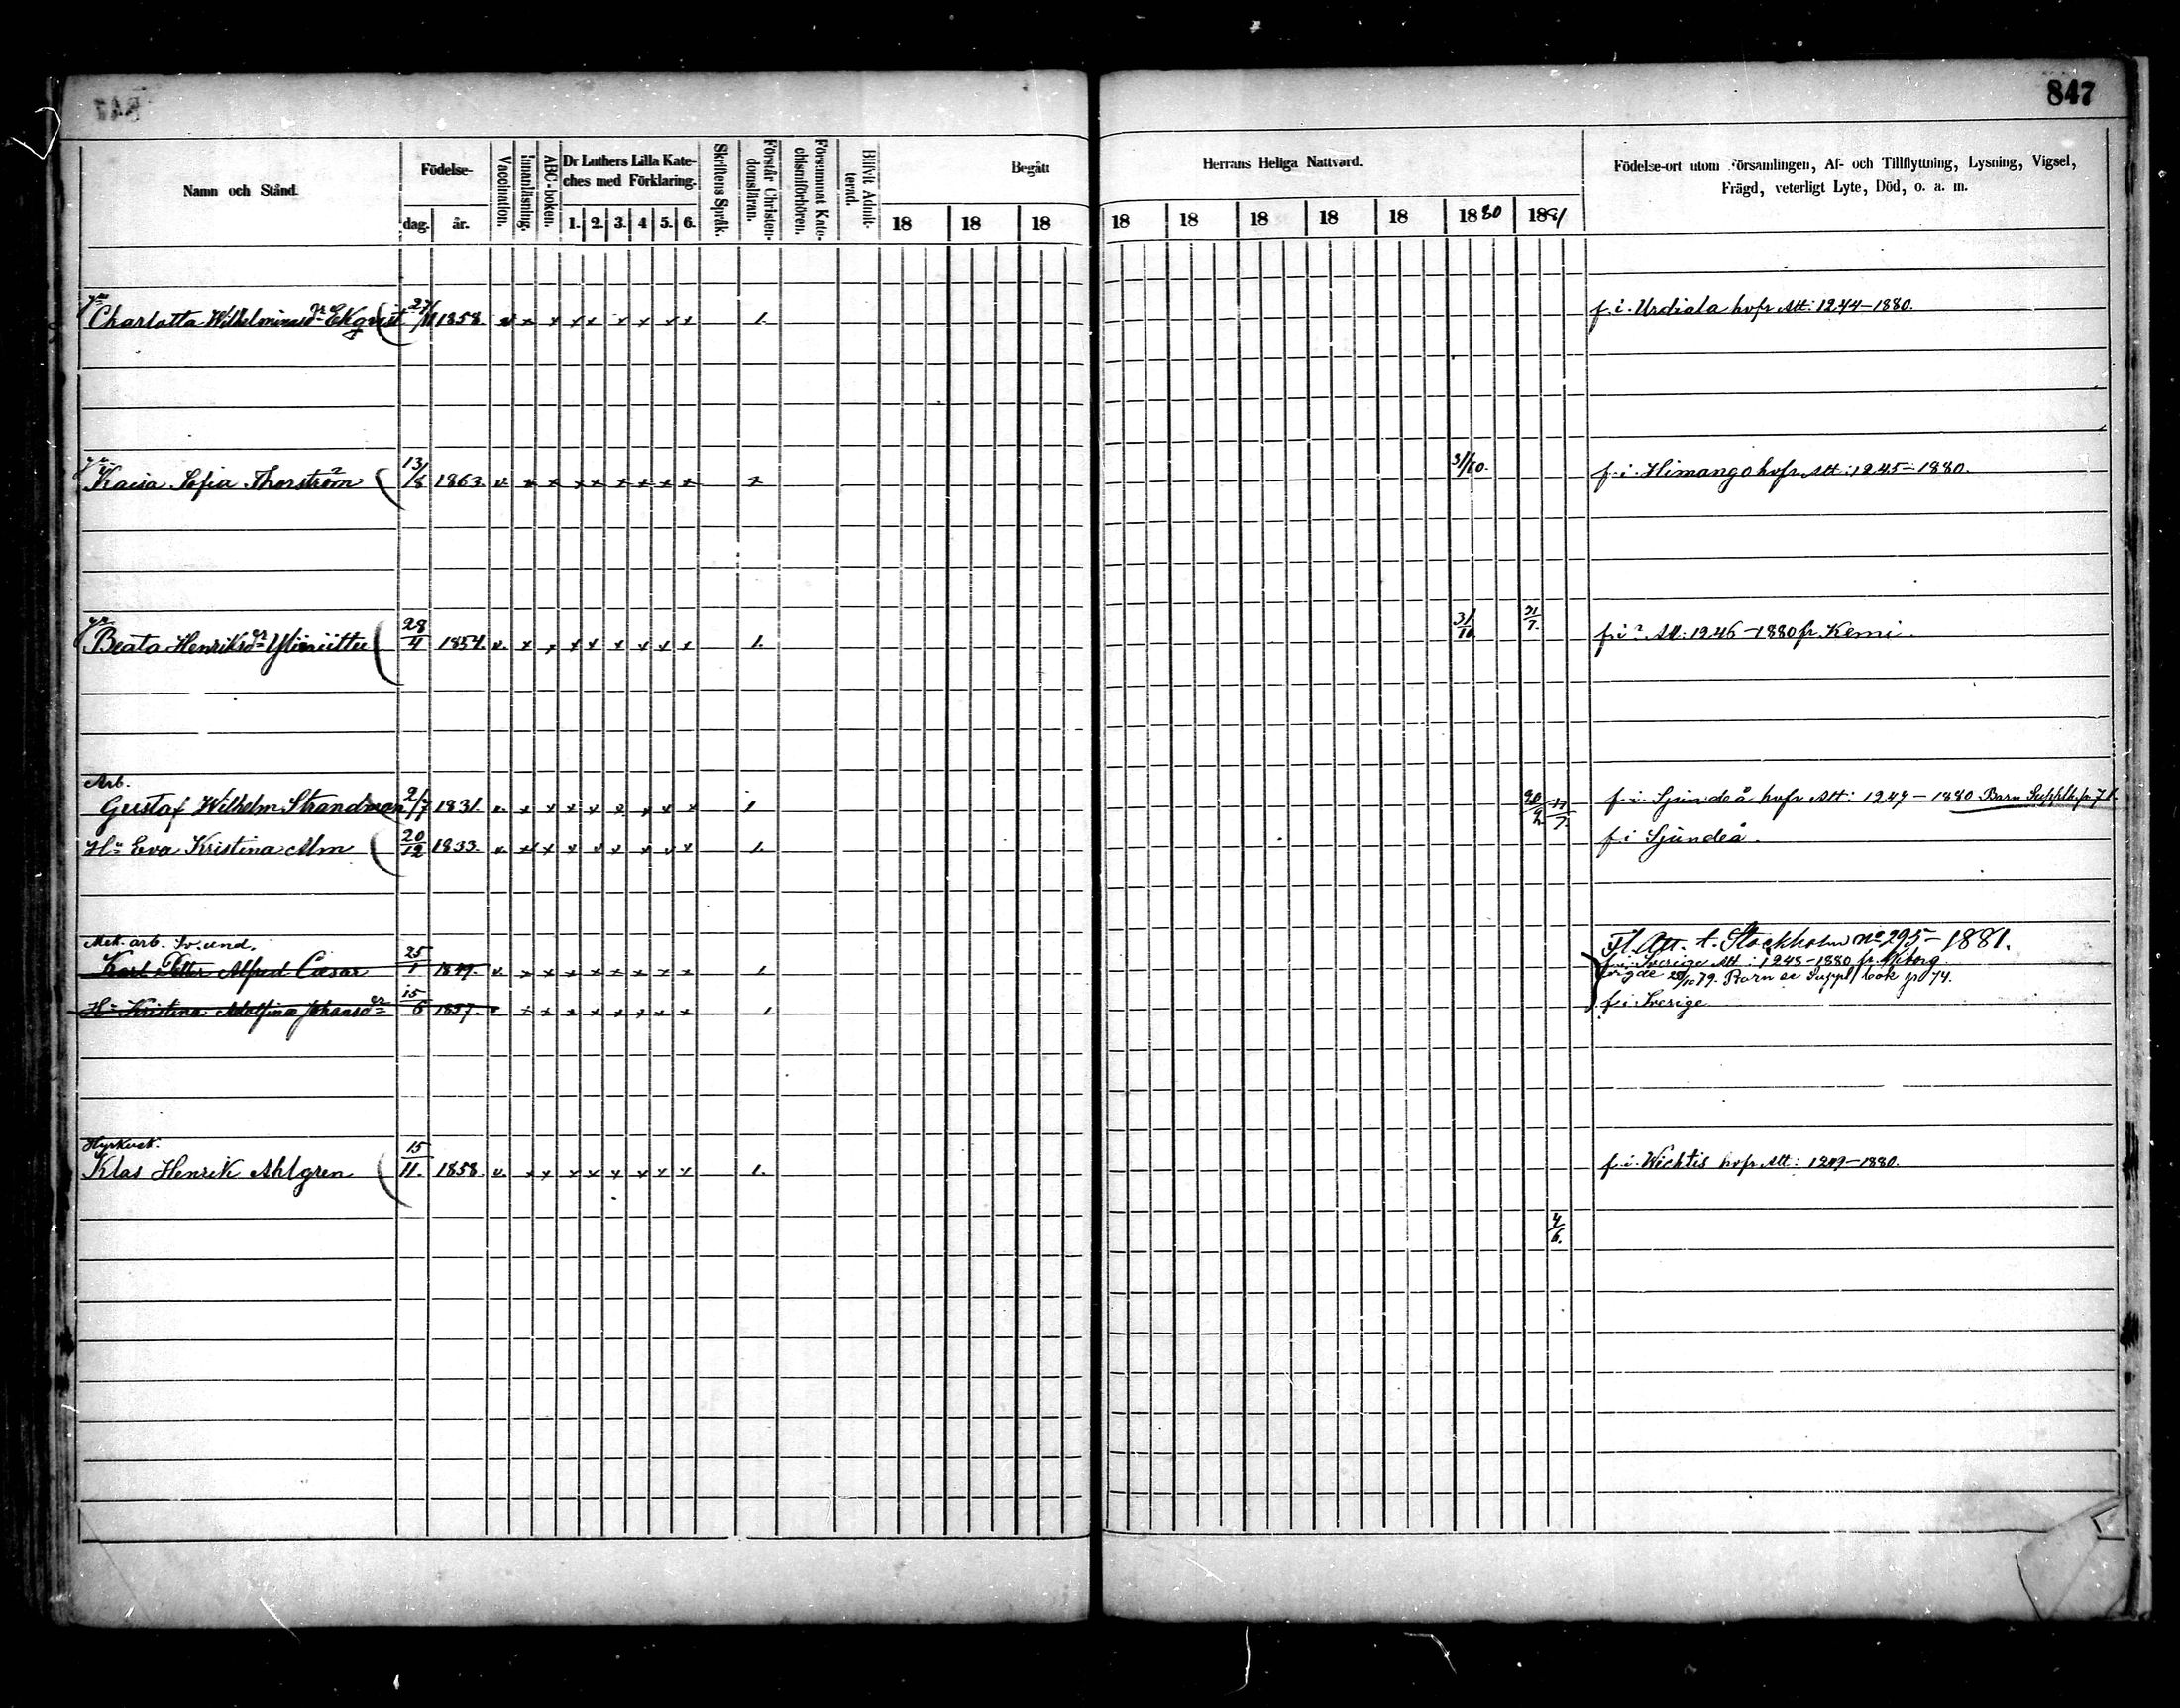 847
Namn och Stånd.
Födelse-
dag. år.
Vaccination.
Innanläsning.
ABC-boken.
Dr Luthers Lilla Kate-
ches med Förklaring.
1. 2. 3. 4 5. 6.
Skriftens Språk.
Förstår Christen-
domsläran.
Försummat Kate-
chismiförhören.
Blifvit Admit-
terad.
Begått
18 18 18
Herrans Heliga Nattvard.
18 18 18 18 18 1880 1881
Födelse-ort utom Församlingen, Af- och Tillflyttning, Lysning, Vigsel,
Frägd, veterligt Lyte, Död, o. a. m.
Charlotta Wilhelminasdr Ekqvist 27/11 1858. v x x x x x x x x 1. f. i. Urdiala hvfr Att: 1244-1880.
Kaisa Sofia Thorström 13/8 1863. v x x x x x x x x x 31/10. f. i. Himango hvfr Att: 1245-1880.
Beata Henriksdr 28/4 1854. v. x x x x x x x x 1. 31/10. 31/7. f. i ? Att: 1246-1880 fr. Kemi.
Arb.
Gustaf Wilhelm Strandman 2/7 1831. v x x x x x x x x 1 f. i. Sjundeå hvfr Att: 1247-1880. Barn
Hu Eva Kristina Alm 20/12 1833. v x x x x x x x x 1. f. i Sjundeå.
Mek. arb. Sv. und.
Fl. Att. t. Stockholm No 295-1881.
Karl Petter Alfred Cæsar 25/1 1849. v x x x x x x x x 1 f. i. Sverige Att: 1248-1880 fr.
79. Barn se Suppl. book p. 74.
Hu Kristina Adolfina Johansdr 15/6 1857. v x x x x x x x x 1 f. i Sverige
Hyrkusk.
Klas Henrik Ahlgren 15/11. 1858. v x x x x x x x x 1. f. i. Wichtis hvfr Att: 1249-1880.
4/6.